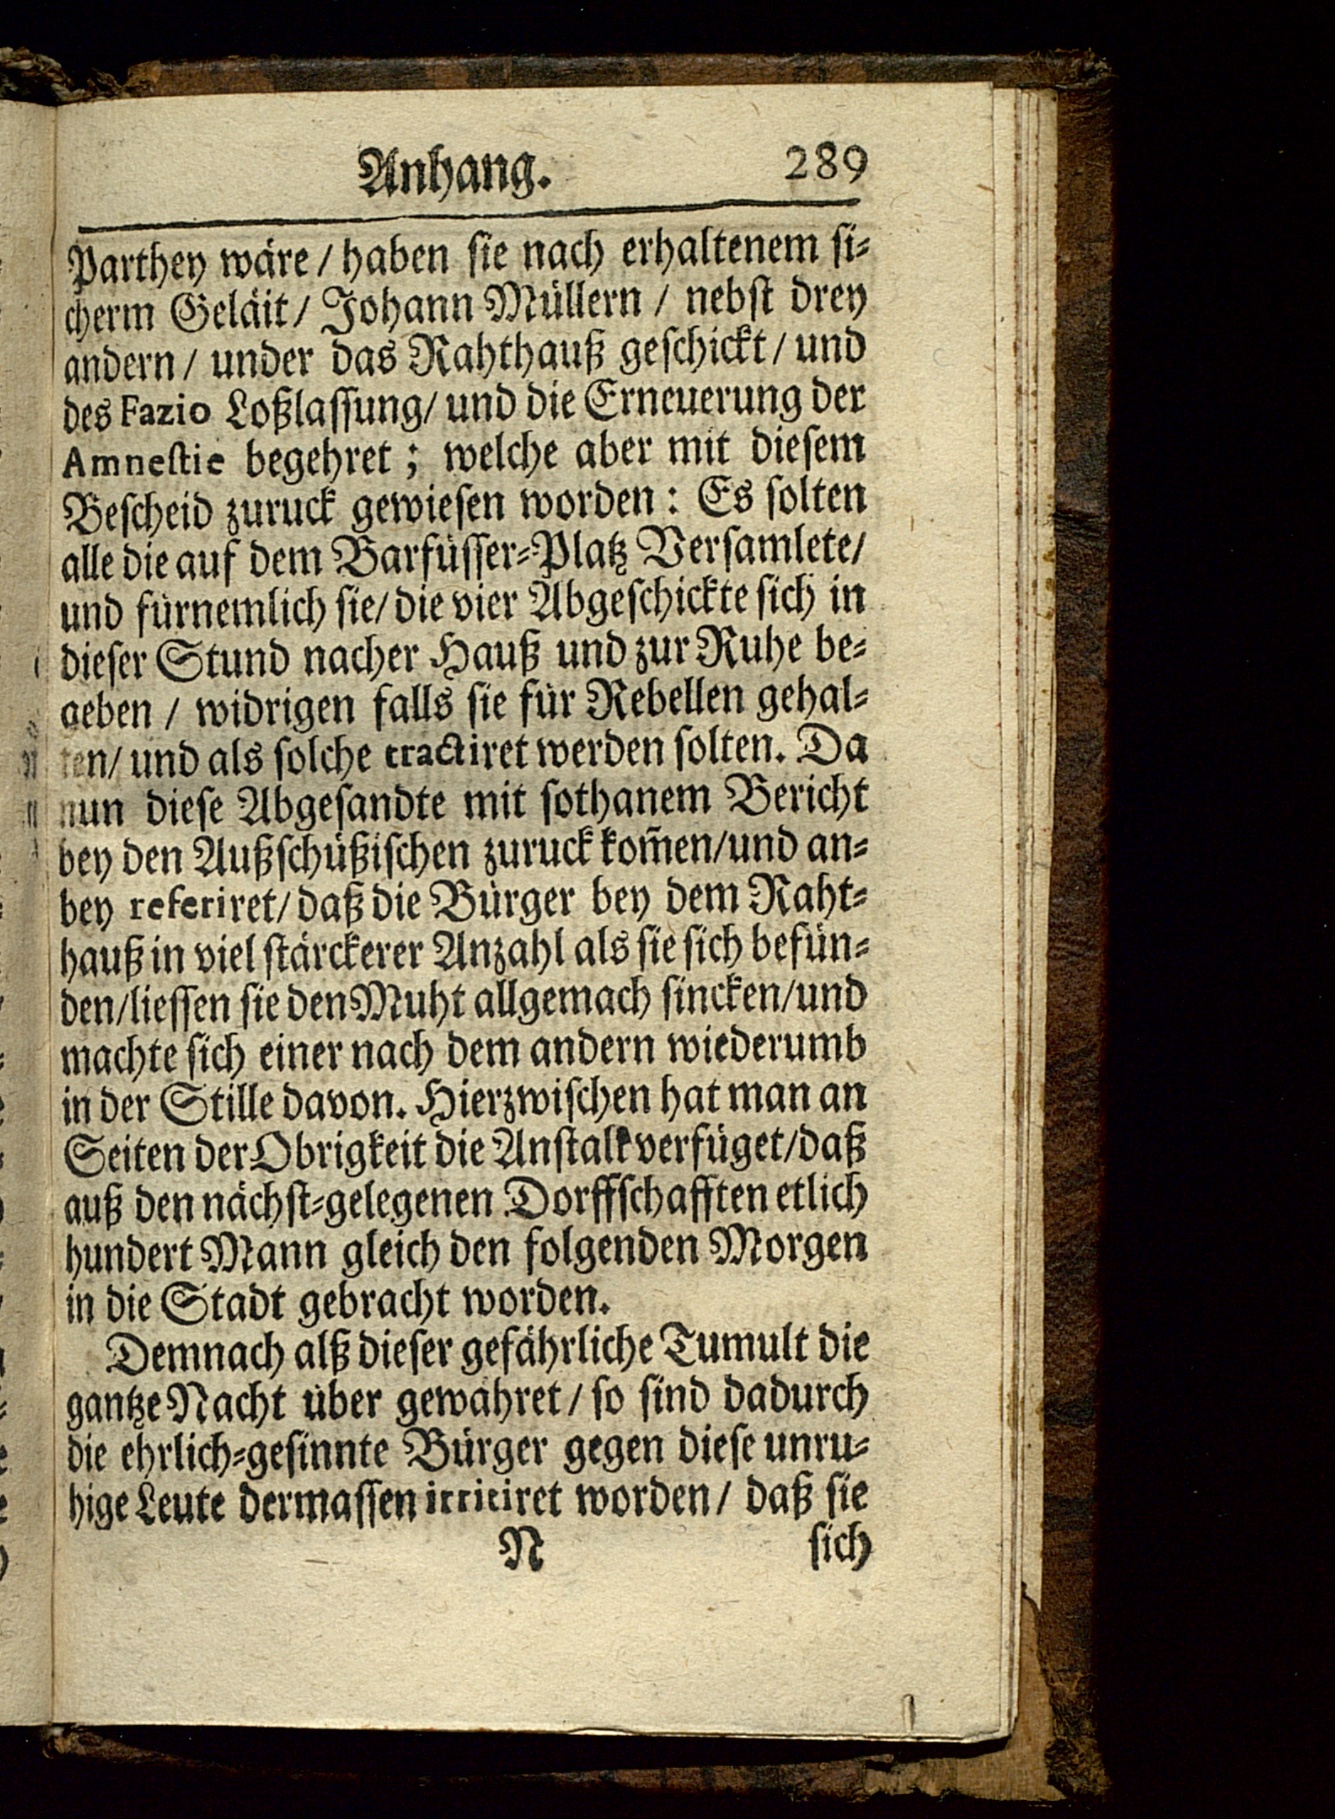 Anhang. 289
Parthey wäre / haben sie nach erhaltenem si-
cherm Geläit / Johann Müllern / nebst drey
andern / under das Rahthauß geschickt / und
des Fazio Loßlassung / und die Erneuerung der
Amnestie begehret ; welche aber mit diesem
Bescheid zuruck gewiesen worden : Es solten
alle die auf dem Barfüsser-Platz Versamlete /
und fürnemlich sie / die vier Abgeschickte sich in
dieser Stund nacher Hauß und zur Ruhe be-
geben / widrigen falls sie für Rebellen gehal-
ten / und als solche tractiret werden solten. Da
nun diese Abgesandte mit sothanem Bericht
bey den Außschüßischen zuruck kom̄en / und an-
bey referiret / daß die Bürger bey dem Raht-
hauß in viel stärckerer Anzahl als sie sich befün-
den / liessen sie den Muht allgemach sincken / und
machte sich einer nach dem andern wiederumb
in der Stille davon. Hierzwischen hat man an
Seiten der Obrigkeit die Anstalt verfüget / daß
auß den nächst-gelegenen Dorffschafften etlich
hundert Mann gleich den folgenden Morgen
in die Stadt gebracht worden.
Demnach alß dieser gefährliche Tumult die
gantze Nacht über gewähret / so sind dadurch
die ehrlich-gesinnte Bürger gegen diese unru-
hige Leute dermassen irritiret worden / daß sie
N sich